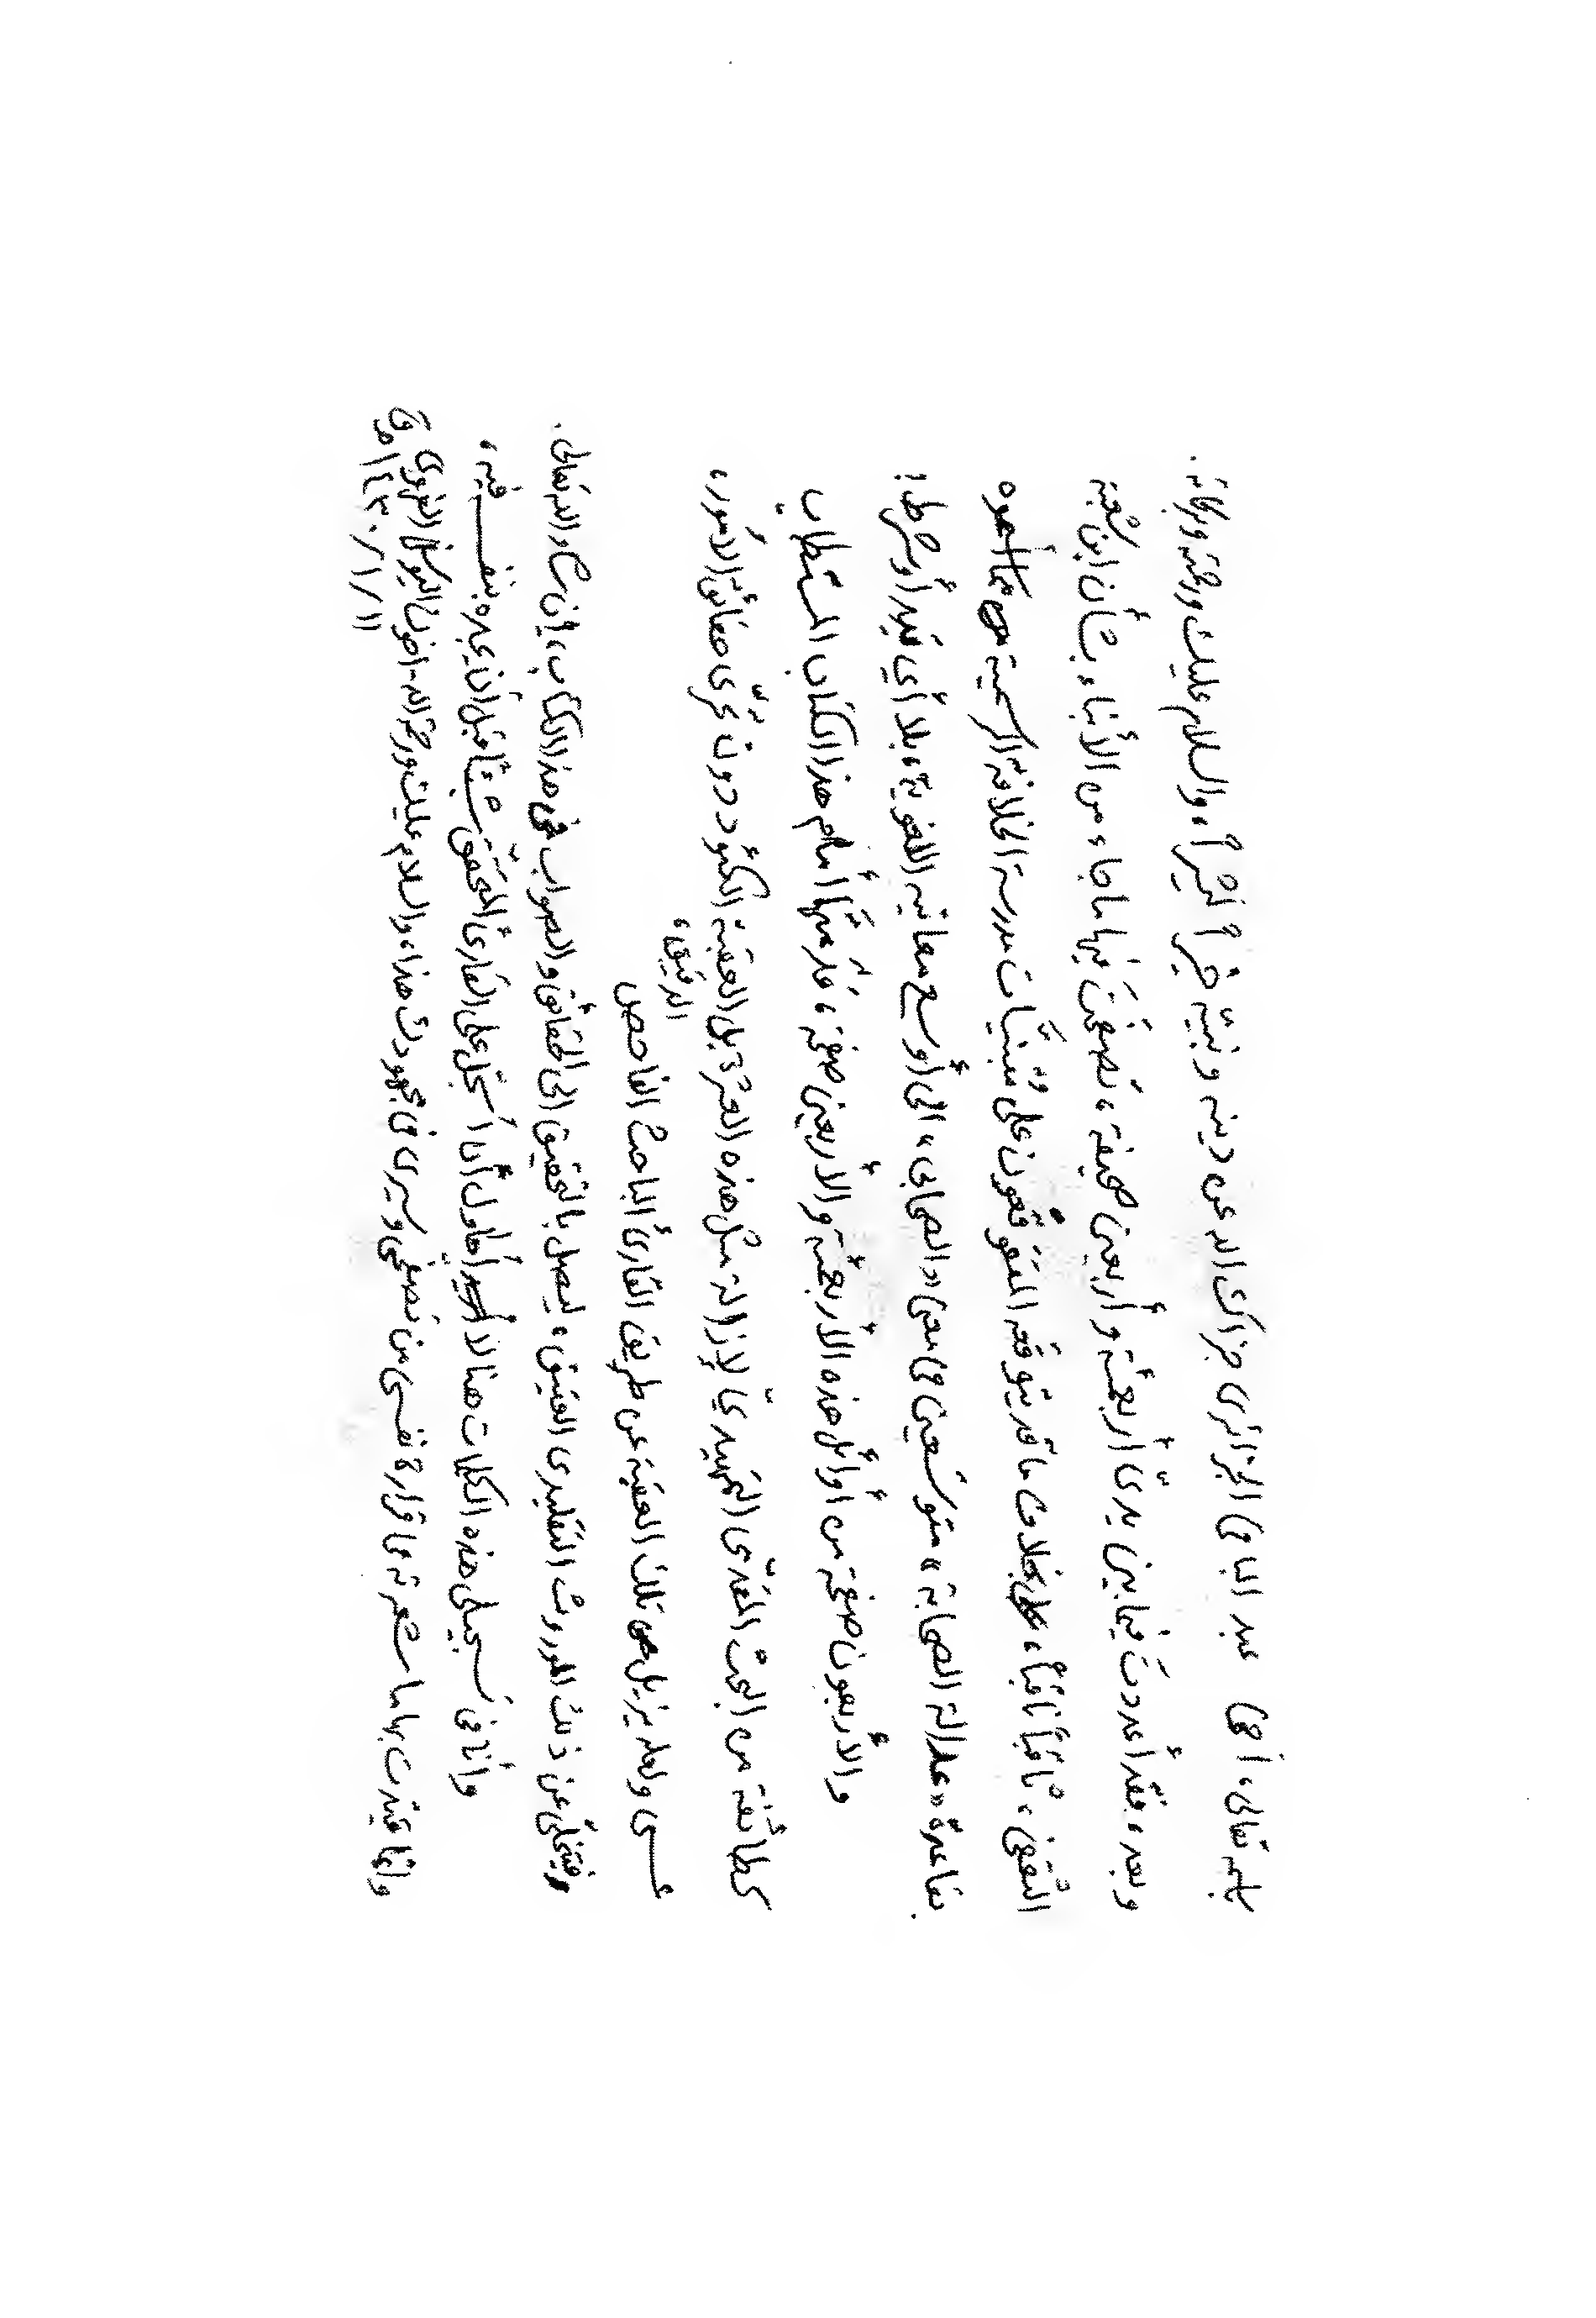 باسمه تعالى، أخي عبد الباقي الجزائري جزاك الله عن دينه ونبيّه خيراً كثيراً، والسلام عليك ورحمته وبركاته.
وبعد، فقد أعددتَ فيما بين يديّ أربعمئة وأربعين صحيفة، تصفحتَ فيها ما جاء من الأنباء بشأن ابن شعبة
الثقفي، ثاقباً ناقباً، بخلاف ما قد يتوقعه المتوقّعون على مُتبنَّيات مدرسة الخلافة الرسمية مما أسموه
بقاعدة «عدالة الصحابة» متوسّعين في معنى «الصحابي» الى أوسع معانيه اللغوية، بلا أي قيد أو شرط!
والأربعون صفحة من اوائل هذه الأربعمئة والأربعين صفحة، قدّمتَها أمام هذا الكتاب المستطاب
كطائفة من البحث المقدّمي التمهيديّ لإزالة مثل هذه العثرة بل العقبة الكؤد دون تحرّى حقائق الأمور،
عسى ولعله يزيل تلك العقبة عن طريق القارئ الباحث الفاحص الدقيق،
فيتخلّى عن ذلك الموروث التقليدي العتيق، ليصل بالتحقيق الى الحقائق والصواب في هذا الكتاب، إن شاء الله تعالى.
وأنا في تسجيلي هذه الكلمات هنا لا أحاول أن أسجّل على القارئ المحقّق شيئاً قبل أن يجده بنفسه فيه،
وإنما قيّدت بها ما شعرته في قرارة نفسي من تصفحي وسيري في مجهودك هذا، والسلام عليك ورحمة الله - اخوك اليوسفي الغروي
١١/١/١٤٣٠ هـ ق